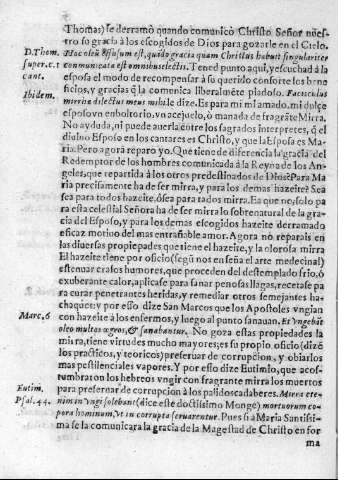 Thomas) se derramò quando comunicò Christo Señor nues-
tro su gracia à los escogidos de Dios para gozarle en el Cielo.
D. Thom. Hoc oleũ effusum est, quia gratia quam Christus habuit singulariter
super. c. 1 communicata est omnibus electis. Tened punto aqui, y escuchad á la
cant. esposa el modo de recompensar à su querido consorte los bene
Ibidem. ficios, y gracias q̃ la comenica liberalmẽte piadoso. Fasciculus
mirrha dilectus meus mihi le dize. Es para mi mi amado, mi dulçe
esposo vn enboltorio, vn açejuelo, ò manada de fragãte Mirra.
No ay duda, ni puede auerla entre los sagrados interpretes, q̃ el
diuino Esposo en los cantares es Christo, y que la Esposa es Ma
ria. Pero agora reparo yo. Que tiene de diferencia la gracia del
Redemptor de los hombres comunicada à la Reyna de los An-
geles, que repartida à los otros predestinados de Dios? Para Ma
ria precisamente ha de ser mirra, y para los demas hazeite? Sea
sea para todos hazeite, ósea para todos mirra. Ea que no, solo pa
ra esta celestial Señora ha de ser mirra lo sobrenatural de la gra
cia del Esposo, y para los demas escogidos hazeite derramado
eficaz motiuo del mas entrañable amor. Agora no reparais en
las diuersas propiedades que tiene el hazeite, y la olorosa mirra
El hazeite tiene por oficio (segũ nos enseña el arte medecinal)
estenuar crasos humores, que proceden del destemplado frio, ó
exuberante calor, aplicase para sanar penosas llagas, recetase pa
ra curar penetrantes heridas, y remediar otros semejantes ha-
chaques: y por esso dize San Marcos que los Apostoles vngian
Marc, 6 con hazeite à los enfermos, y luego al punto sanauan. Et vngebãt
oleo multos ægros, & sanabantur. No goza estas propiedades la
mirra, tiene virtudes mucho mayores; es su propio oficio (dizẽ
los practicos, y teoricos) preseruar de corrupcion, y obiarlos
mas pestilenciales vapores. Y por esso dize Eutimio, que acos-
tumbraron los hebreos vngir con fragrante mirra los muertos
Eutim. para preseruar de corrupcion à los palidos cadaberes. Mirra ete-
Psal. 44. nim inungi solebant (dice este doctissimo Monge) mortuorum cor
pora hominum, vt in corrupta seruarentur. Pues si a Maria Santissi
ma se la comunicara la gracia de la Magestad de Christo en for
ma